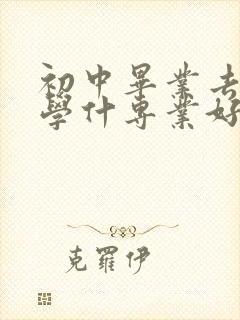 初中畢業去
學什專業好
克羅伊